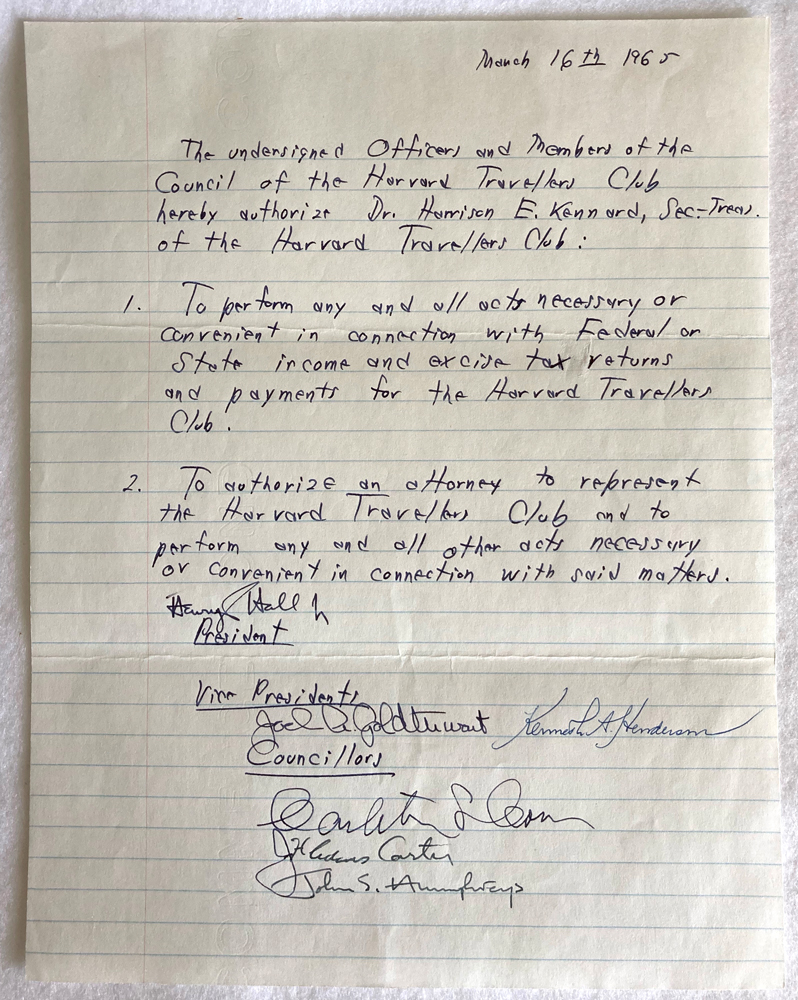 March 16th 1965
The undersigned Officers and Members of the
Council of the Harvard Travellers Club
hereby authorize Dr. Harrison E. Kennard, Sec-Treas.
of the Harvard Travellers Club:
1. To perform any and all acts necessary or
convenient in connection with Federal or
State income and excise tax returns
and payments for the Harvard Travellers
Club.
2. To authorize an attorney to represent
the Harvard Travellers Club and to
perform any and all other acts necessary
or convenient in connection with said matters.
Henry Hall Jr
President
Vice Presidents
Joel E. Goldthwait Kenneth A. Henderson
Councillors
Carleton S. Coon
Carter
John S. Humphreys